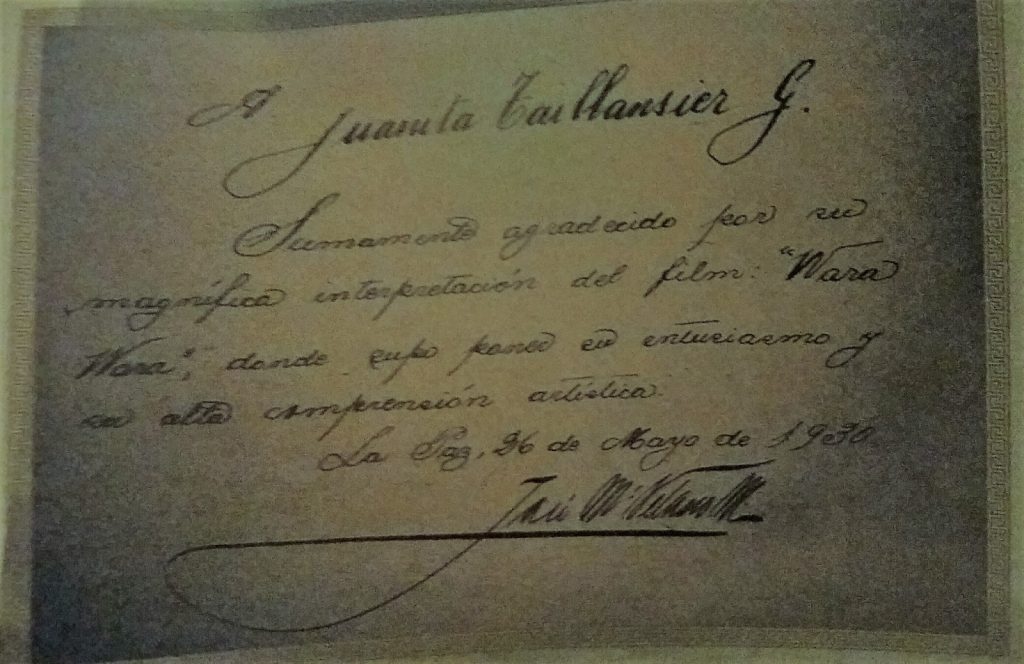 A Juanita Taillansier G.
Sumamente agradecido por su
magnífica interpretación del film: "Wara
Wara", donde supo poner su entusiasmo y
su alta comprensión artística.
La Paz, 26 de Mayo de 1930.
José Mª Velasco M